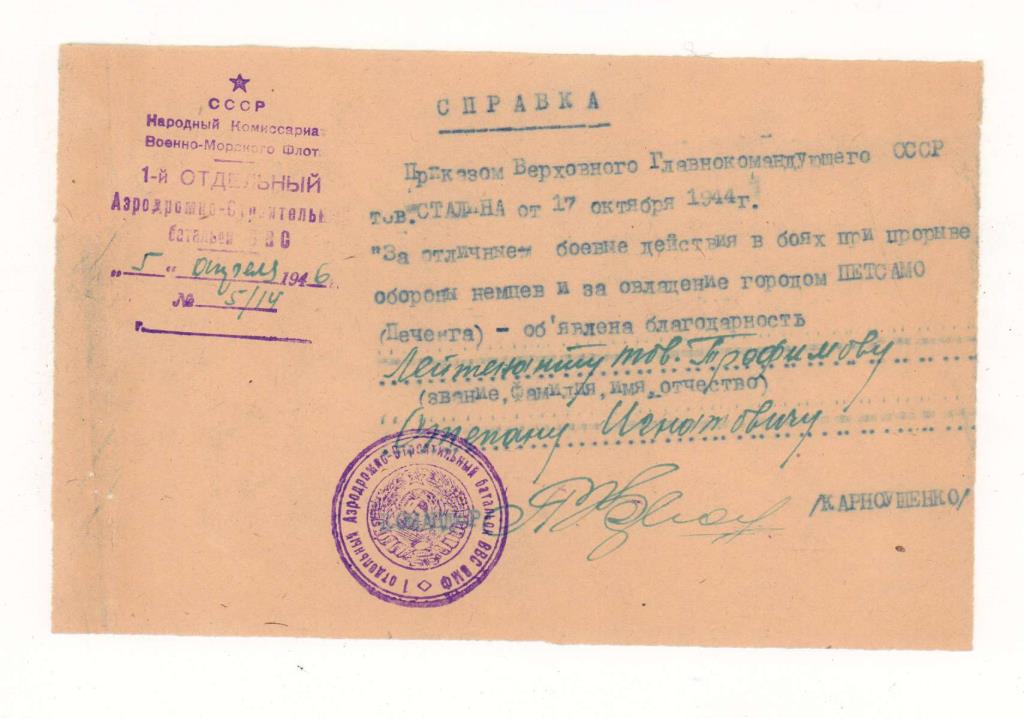 СССР
Народный Комиссариа
Военно-Морского Флот
1-й ОТДЕЛЬНЫЙ
Аэродромно-Строительн
батальон ВВС
"5" апреля 1946г.
№ 5/14
г.
СПРАВКА
Приказом Верховного Главнокомандующего СССР
тов. СТАЛИНА от 17 октября 1944г.
"За отличные боевые действия в боях при прорыве
обороны немцев и за овладение городом ПЕТСАМО
(Печенга) - об'явлена благодарность
Лейтенанту тов. Трофимову
(звание, фамилия, имя, отчество)
Степану Игнатовичу
КОМАНДИР
/КАРНОУШЕНКО/
1 отдельный Аэродромно-Строительный батальон ВВС ВМФ